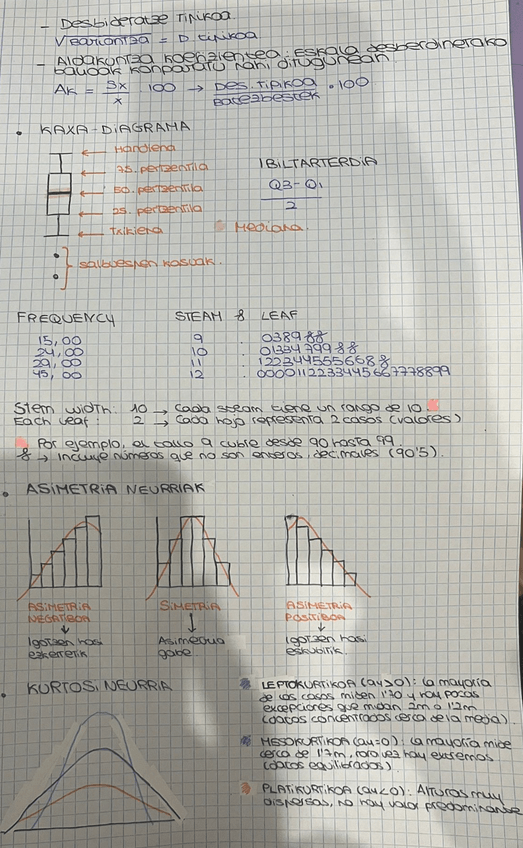 - Desbideratze Tipikoa.
√Bariantza = D. tipikoa
- Aldakuntza koefizientea: Eskala desberdinetako
datuak konparatu nahi ditugunean
AK = Sx/x̄ 100 → Des. Tipikoa/Batezbestek. · 100
• KAXA-DIAGRAMA
← Handiena
← 75. pertzentila
← 50. pertzentila
← 25. pertzentila
← Txikiena
} Salbuespen kasuak.
IBILTARTERDIA
Q3-Q1
2
Mediana.
FREQUENCY STEAM & LEAF
15,00 9 . 0389&&
24,00 10 . 01334799&&
29,00 11 . 122344555668&
45,00 12 . 0000112233445667778899
Stem width: 10 → Cada steam tiene un rango de 10.
Each leaf: 2 → Cada hoja representa 2 casos (valores)
Por ejemplo, el tallo 9 cubre desde 90 hasta 99.
& → Incluye números que no son enteros, decimales (90'5).
• ASIMETRIA NEURRIAK
ASIMETRIA NEGATIBOA
↓
Igotzen hasi
ezkerretik
SIMETRIA
↓
Asimetria
gabe
ASIMETRIA POSITIBOA
↓
Igotzen hasi
eskubitik.
• KURTOSI NEURRIA
* LEPTOKURTIKOA (au>0): La mayoría
de los casos miden 1'70 y hay pocas
excepciones que midan 2m o 1'2m
(datos concentrados cerca de la media).
* MESOKURTIKOA (au=0): La mayoría mide
cerca de 1'7m, hay extremos
(datos equilibrados)
* PLATIKURTIKOA (au<0): Alturas muy
dispersas, no hay valor predominante